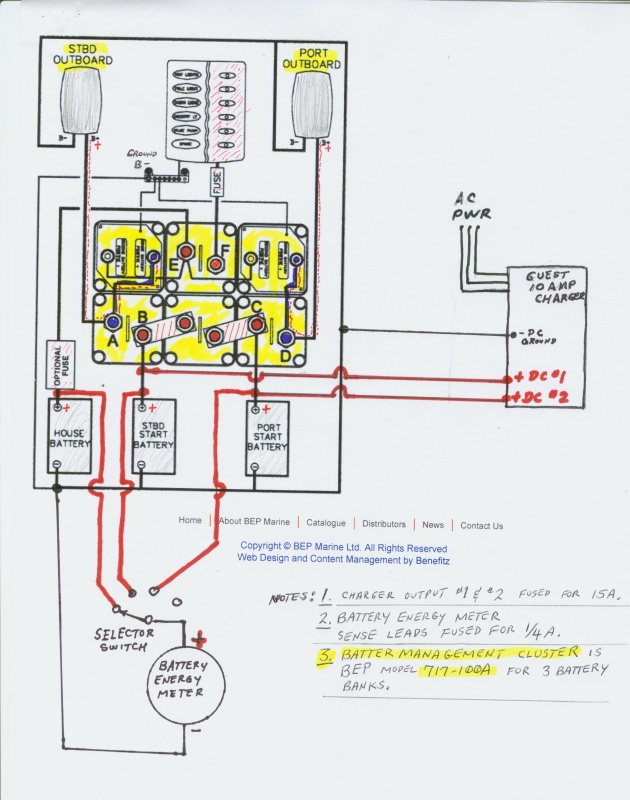 STBD
OUTBOARD
PORT
OUTBOARD
B-
B+
+
B-
B+
+
GROUND
B-
FUSE
E
F
A
B
C
D
OPTIONAL
FUSE
+
HOUSE
BATTERY
+
STBD
START
BATTERY
+
PORT
START
BATTERY
AC
PWR
GUEST
10 AMP
CHARGER
- DC
GROUND
+ DC #1
+ DC #2
Home | About BEP Marine | Catalogue | Distributors | News | Contact Us
Copyright © BEP Marine Ltd. All Rights Reserved
Web Design and Content Management by Benefitz
NOTES: 1. CHARGER OUTPUT #1 & #2 FUSED FOR 15A.
2. BATTERY ENERGY METER
SENSE LEADS FUSED FOR 1/4 A.
3. BATTER MANAGEMENT CLUSTER IS
BEP MODEL 717-100A FOR 3 BATTERY
BANKS.
SELECTOR
SWITCH
+
BATTERY
ENERGY
METER
-